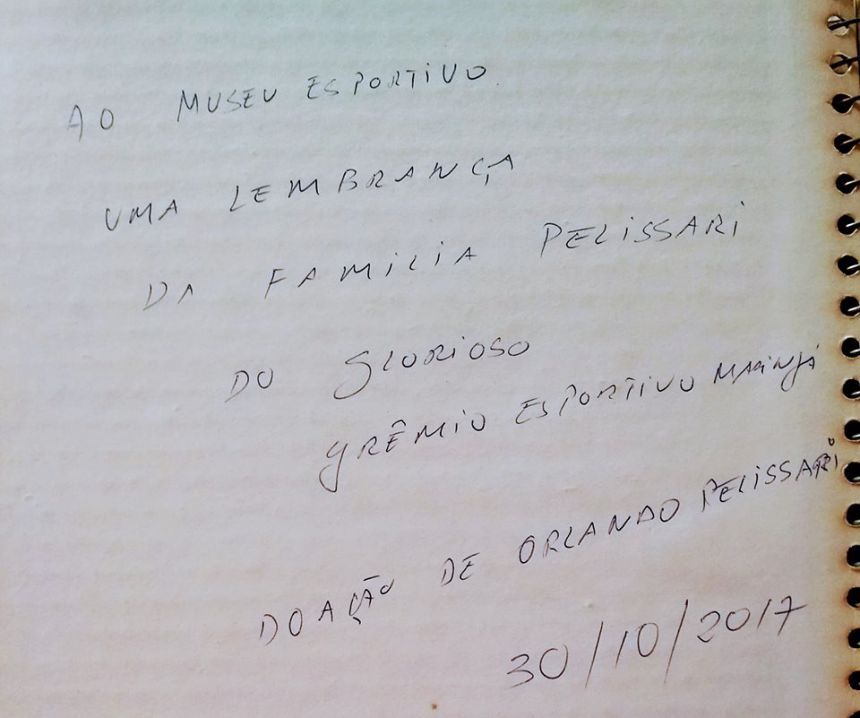 AO MUSEU ESPORTIVO
UMA LEMBRANÇA
DA FAMILIA PELISSARI
DO GLORIOSO
GRÊMIO ESPORTIVO MARINGÁ
DOAÇÃO DE ORLANDO PELISSARI
30/10/2017